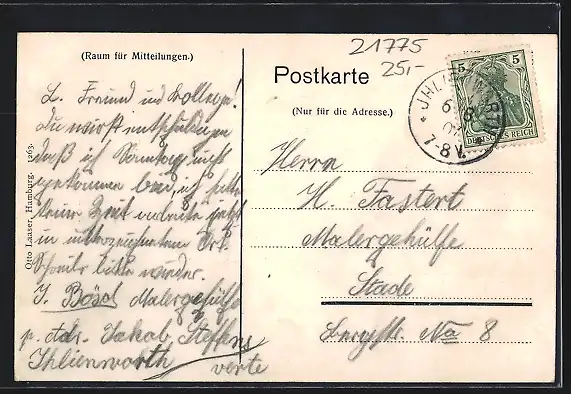 (Raum für Mitteilungen.)
L. Freund und Kollege!
Du wirst entschuldigen
daß ich Sonntag nicht
gekommen bin, ich hatte
keine Zeit
in unterzeichnetem Ort.
Schreib bitte wieder.
J. Bösch Malergehülfe
p. Adr. Jakob Steffens
Ihlienworth
verte
Otto Laaser, Hamburg. 1263.
21775
25,-
Postkarte
(Nur für die Adresse.)
5 5
DEUTSCHES REICH
6 8
7-8 V.
Herrn
H. Fastert
Malergehülfe
Stade
No 8